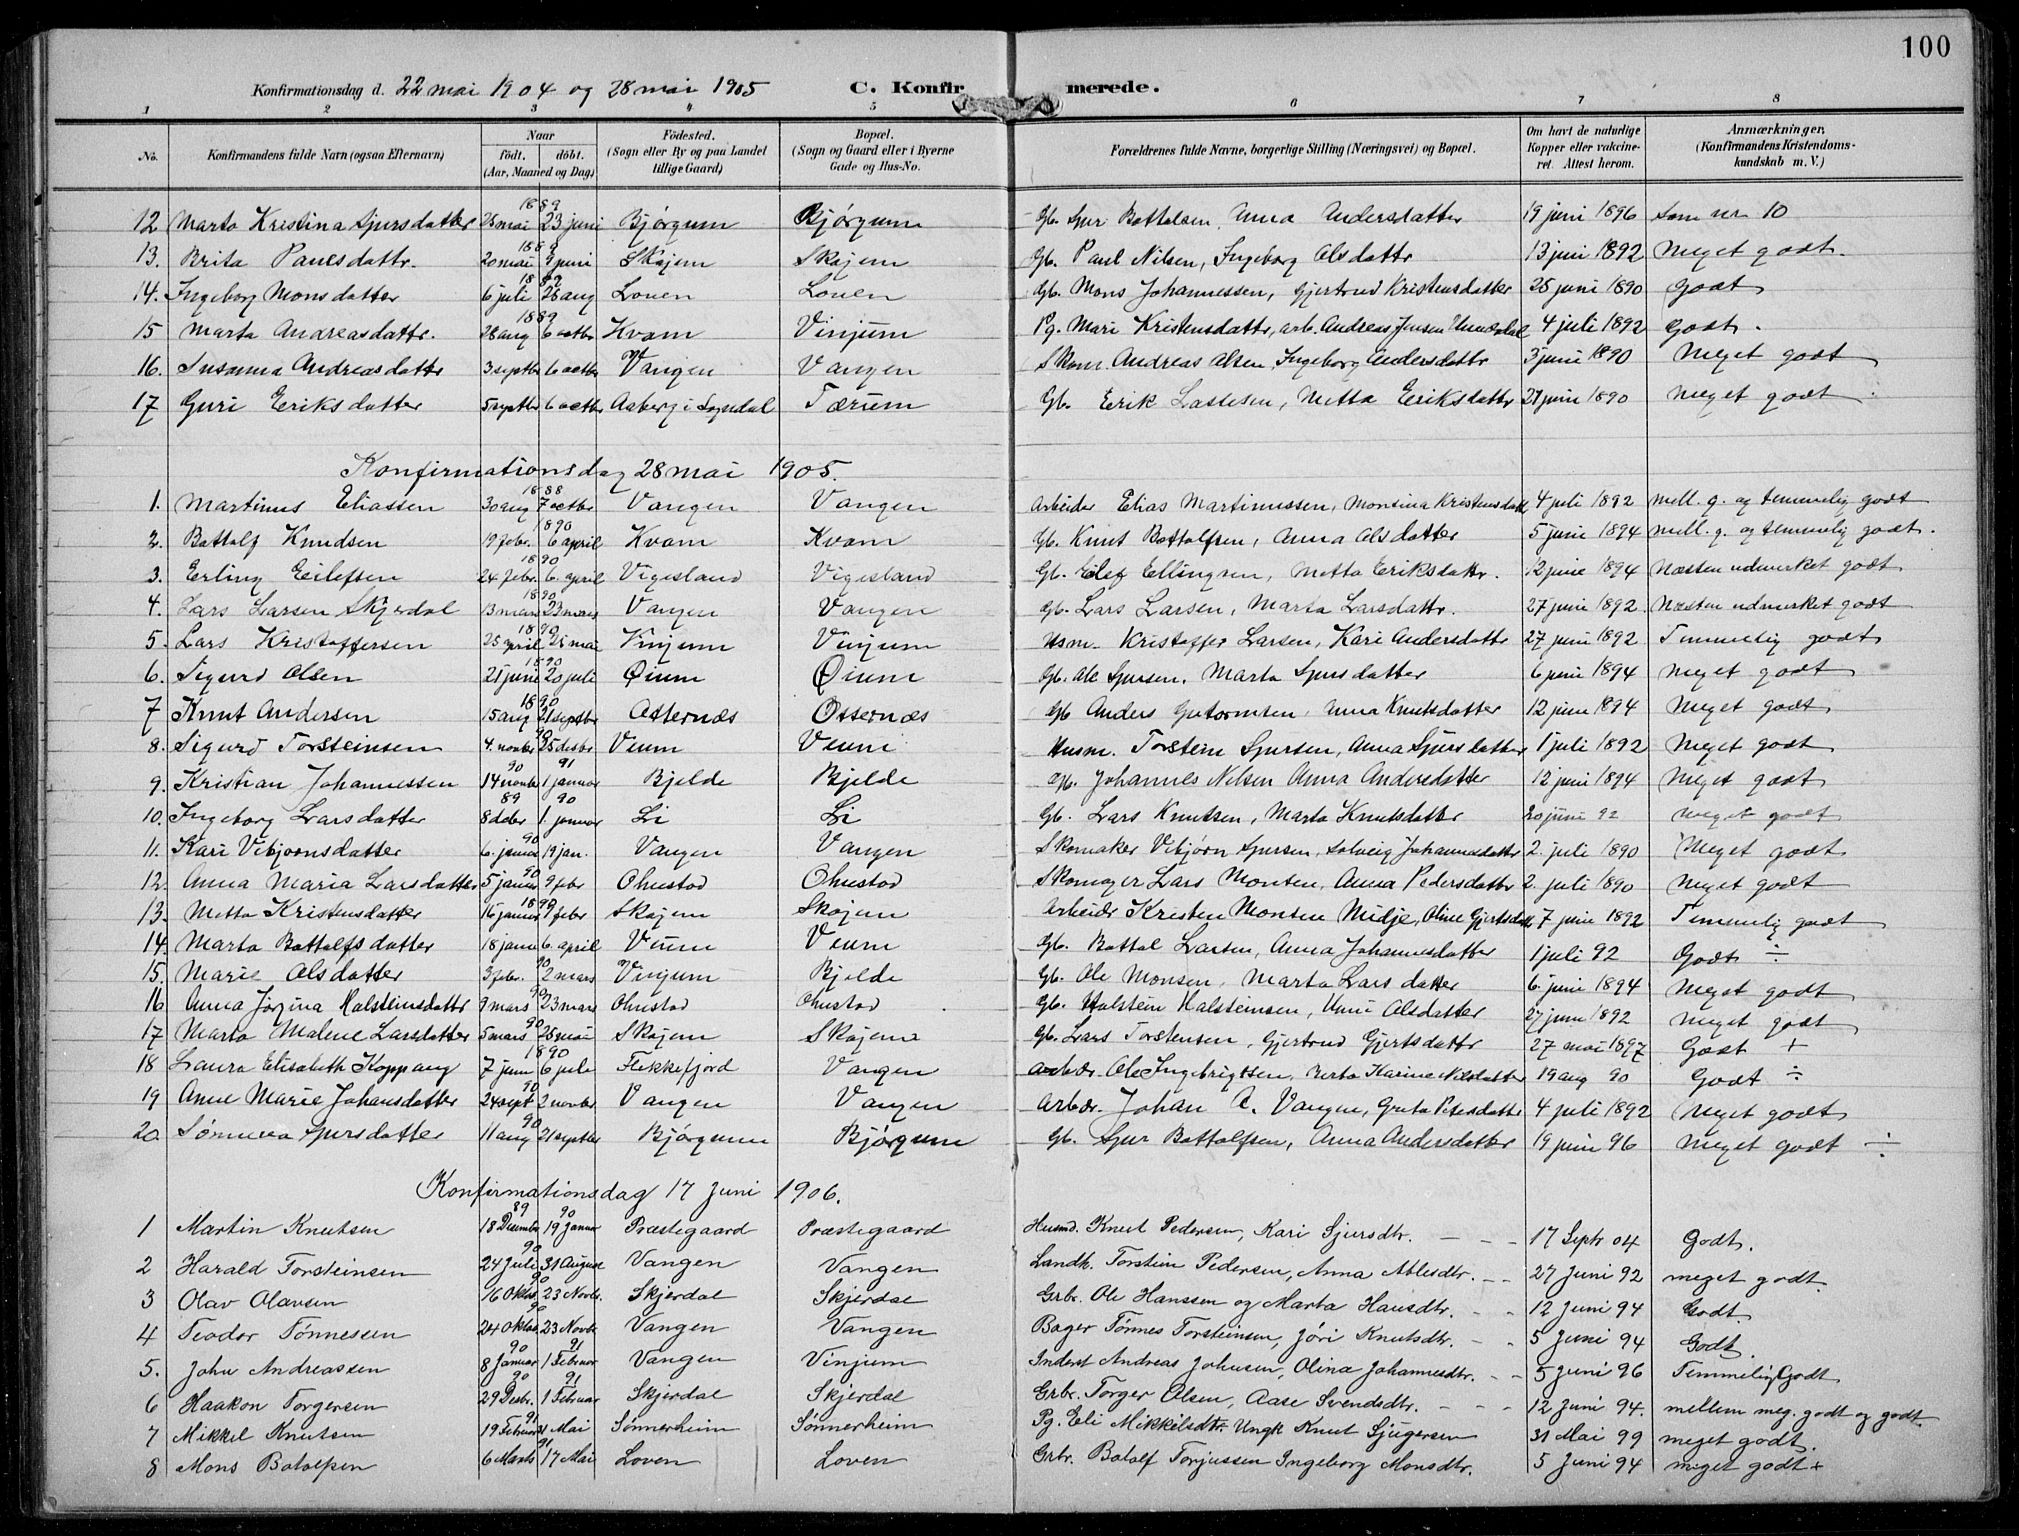 100
Konfirmationsdag d. 22 mai 1904 og 28 mai 1905 C. Konfirmerede.
1 2 3 4 5 6 7 8
No. Konfirmandens fulde Navn (ogsaa Efternavn) Naar født. døbt. (Aar, Maaned og Dag) Fødested. (Sogn eller By og paa Landet tillige Gaard) Bopæl. (Sogn og Gaard eller i Byerne Gade og Hus-No. Forældrenes fulde Navne, borgerlige Stilling (Næringsvei) og Bopæl. Om havt de naturlige Kopper eller vakcineret. Attest herom. Anmærkninger, (Konfirmandens Kristendomskundskab m. V.)
1889
12 Marta Kristina Sjursdatter 25 mai 23 juni Bjørgum Bjørgum Gb. Sjur Bottolsen, Anna Andersdatter 19 juni 1896 Som nr 10
1889
13. Brita Paulsdattr. 20 mai 9 juni Skajem Skajem Gb. Paul Nilsen, Ingeborg Olsdattr 13 juni 1892 Meget godt.
1889
14. Ingeborg Monsdatter 6 juli 26 aug Loven Loven Gb. Mons Johannessen, Gjertrud Kristensdatter 25 juni 1890 godt
1889
15 Marta Andreasdattr. 28 aug 6 octbr Kvam Vinjum Pg. Mari Kristensdattr, arb. Andreas Jensen 4 juli 1892 godt.
16. Susanna Andreasdattr 3 septbr 6 octbr Vangen Vangen Skom. Andreas Olsen, Ingeborg Andersdattr 3 juni 1890 Meget godt
17 Guri Eriksdatter 5 septbr 6 octbr Aaberg i Sogndal Tærum Gb. Erik Lassesen, Metta Eriksdattr 27 juni 1890 meget godt.
Konfirmationsdag 28 mai 1905.
1888
1. Martinus Eliassen 30 aug 7 octbr Vangen Vangen Arbeider Elias Martinussen, Montina Kristensdatt 4 juli 1892 mell. g. og temmelig godt
1890
2. Bottolf Knudsen 19 febr. 6 april Kvam Kvam Gb. Knut Bottolfsen, Anna Olsdatter 5 juni 1894 mell. g. og temmelig godt.
1890
3. Erling Eilefsen 24 febr. 6. april Vigesland Vigesland Gb. Eilef Ellingsen, Metta Eriksdattr. 12 juni 1894 Næsten udmerket godt
1890
4. Lars Larsen Skjerdal 13 mars 23 mars Vangen Vangen Gb. Lars Larsen, Marta Larsdattr. 27 juni 1892 Næsten udmerket godt
1890
5. Lars Kristoffersen 25 april 26 mai Vinjum Vinjum Husm. Kristoffer Larsen, Kari Andersdattr 27 juni 1892 Temmelig godt
1890
6. Sigurd Olsen 21 juni 20 juli Øium Øium Gb. Ole Sjursen, Marta Sjursdatter 6 juni 1894 Meget godt
1890
7 Knut Andersen 15 aug 21 septbr Otternæs Otternæs Gb Anders Gutormsen, Anna Knutsdatter 12 juni 1894 Meget godt
90
8. Sigurd Torsteinsen 4. novbr 25 desbr Veum Veum Husm. Torstein Sjursen, Anna Sjursdatter 1 juli 1892 Meget godt
90 91
9. Kristian Johannessen 14 novbr 1 januar Bjelde Bjelde Gb. Johannes Nilsen Anna Andersdatter 12 juni 1894 Meget godt
89 90
10. Ingeborg Larsdatter 8 dcbr 1. januar Li Li Gb. Lars Knutsen, Marta Knutsdatter 20 juni 92 meget godt
90
11. Kari Vibjørnsdatter 6. januar 19 jan. Vangen Vangen Skomaker Vibjørn Sjursen, Solveig Johannesdatter 2. juli 1890 Meget godt
90
12. Anna Maria Larsdatter 5 januar 9 febr Ohnstad Ohnstad Skomager Lars Monsen, Anna Pedersdattr 2. juli 1890 Meget godt
1890
13. Metta Kristensdatter 16 januar 9 febr Skajem Skajem Arbeidr Kristen Monsen Midje, Oline Gjertsdatt 7 juni 1892 Temmelig godt
14. Marta Bottolfsdatter 18 janu 6. april Veum Veum Gb. Bottol Larsen, Anna Johannesdatter 1 juli 92 Godt ÷
90
15. Marie Olsdatter 3 febr. 2 mars Vinjum Bjelde Gb. Ole Monsen, Marta Larsdatter 6. juni 1894 Meget godt
90
16 Anna Jorgina Halsteinsdattr 9 mars 23 mars Ohnstad Ohnstad Gb. Halstein Halsteinsen, Unni Olsdatter 27 juni 1892 Meget godt
90
17 Marta Malene Larsdatter 5 mars 26 mai Skajem Skajem Gb. Lars Torstensen, Gjertrud Gjertsdattr 27 mai 1897 Godt +
1890
18 Laura Elisabeth Koppang 7 juni 6 juli Flekkefjord Vangen Arbeidr. Ole Ingebrigtsen, Berta Karine Nilsdatter 19 aug 90 Godt ÷
90
19 Anne Marie Johansdatter 24 sept 2 novbr. Vangen Vangen Arbeidr. Johan A. Vangen, Greta Petersdattr 4 juli 1892 Meget godt
90
20. Sønneva Sjursdatter 11 aug 21 septbr Bjørgum Bjørgum Gb. Sjur Bottolfsen, Anna Andersdatter 19 juni 96 Meget godt ÷
Konfirmationsdag 17 Juni 1906.
89 90
1 Martin Knutsen 18 Desember 19 Januar Præstegaard Præstegaard Husmd. Knut Pedersen, Kari Sjursdtr. 17 Septr 04 Godt.
90
2 Harald Torsteinsen 24 Juli 31 August Vangen Vangen Landh. Torstein Pedersen, Anna Ablesdtr. 27 Juni 92 meget godt.
90
3 Olav Olavsen 16 Oktob. 23 Novbr. Skjerdal Skjerdal Grbr. Ole Hanssen og Marta Hansdtr. 12 Juni 94 Godt.
90
4 Teodor Tønnesen 24 Oktob. 23 Novbr Vangen Vangen Bager Tønnes Torsteinsen, Jóri Knutsdtr. 5 Juni 94 Godt.
90 91
5. John Andreassen 8 Januar 1 Februar Vangen Vinjum Inderst Andreas Johnsen, Olina Johannesdtr. 5 Juni 96 Temmelig Godt
90 91
6 Haakon Torgersen 29 Desbr. 1 Februar Skjerdal Skjerdal Grbr. Torger Olsen, Aase Svendsdtr. 12 Juni 94. mellem meg. godt og godt.
91
7 Mikkel Knutsen 19 Februar 31 Mai Sønnerheim Sønnerheim Pg. Eli Mikkelsdtr. Ungk Knut Sjugersen 31 Mai 99 meget godt.
91
8 Mons Botolfsen 6 Marts 17 Mai Loven Loven Grbr. Botolf Torjussen Ingeborg Monsdtr. 5 Juni 94 meget godt +